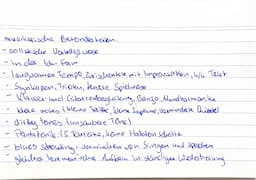 musikalische Besonderheiten:
- solistische Vortragsweise
- in der Ich Form
- langsames Tempo, Zwischenteile mit Improvisation, 4/4 Takt
- Synkopen, Triolen,
- Klavier und Gitarrenbegleitung, Banjo, Mundharmonika
- blue notes (kleine Terz, kleine Septime, verminderte Quinte)
- dirty tones (unsaubere Töne)
- Pentatonik: 5 Tonreihe, keine Halbtonschritte
- blues shouting: vermischen von Singen und
- harmonischer Aufbau in ständiger Wiederholung